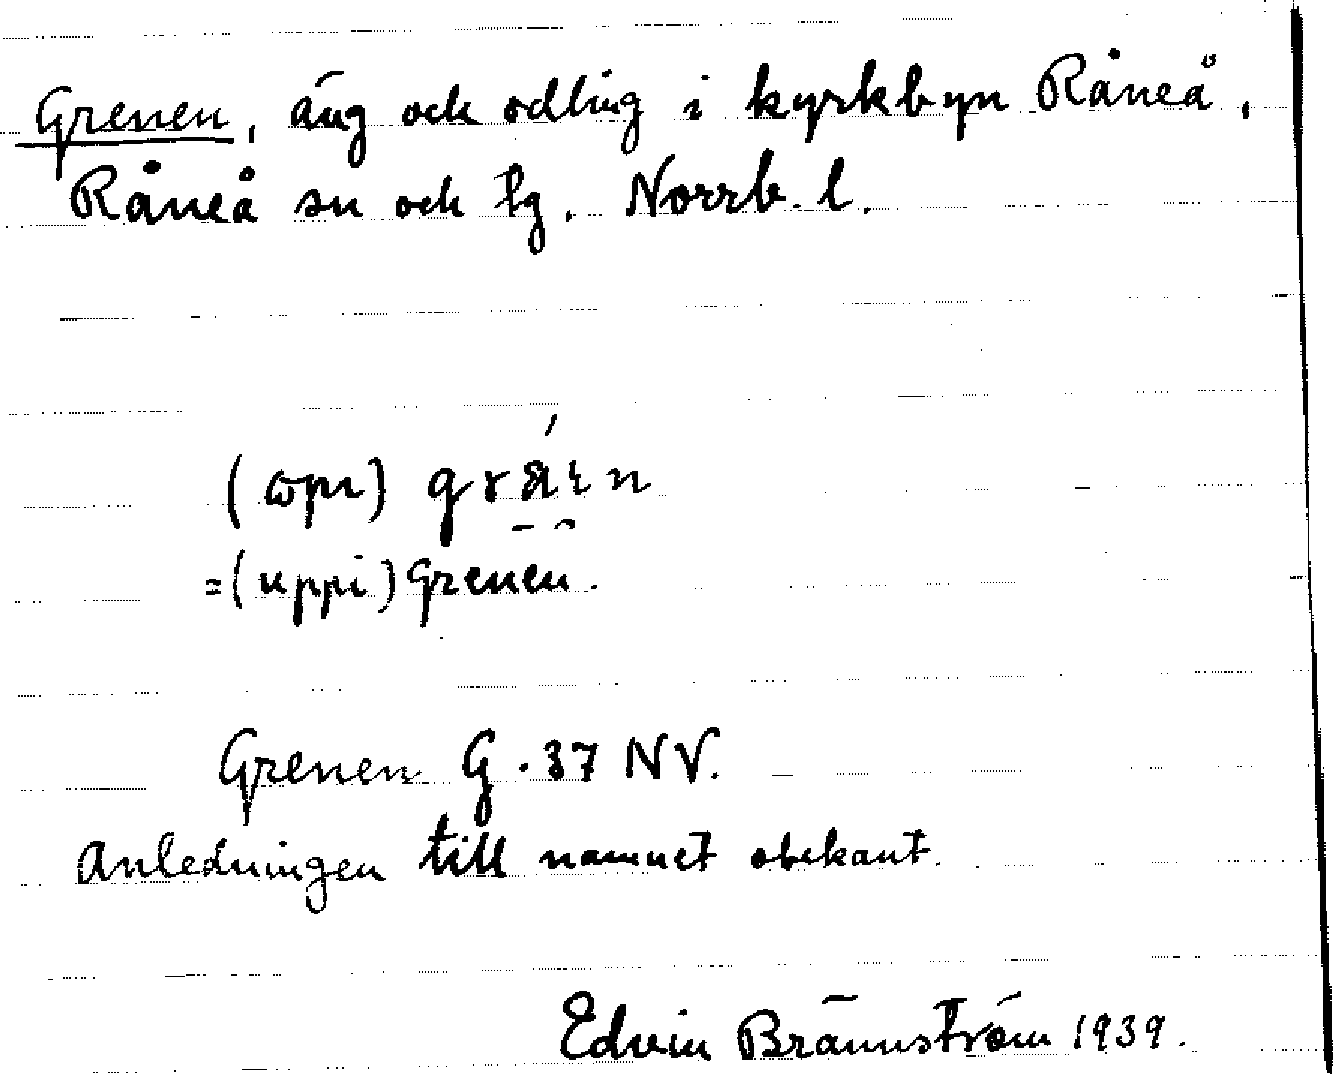 Grenen, äng och odling i kyrkbyn Råneå,
Råneå sn och tg. Norrb. l.
=(uppi) Grenen.
Grenen G. 37 NV.
Anledningen till namnet obekant.
Edvin Brännström 1939.